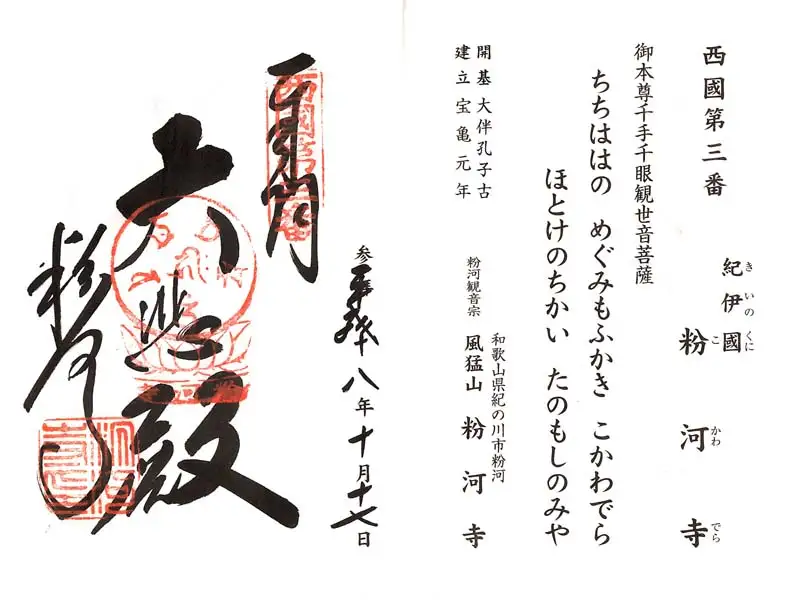 西國第三番
紀伊國
きいのくに
粉河寺
こかわでら
御本尊千手千眼観世音菩薩
ちちははの めぐみもふかき こかわでら
ほとけのちかい たのもしのみや
開基 大伴孔子古
建立 宝亀元年
和歌山県紀の川市粉河
粉河観音宗 風猛山 粉河寺
奉拝
西國第三番
十八年十月十七日
大悲殿
粉河寺